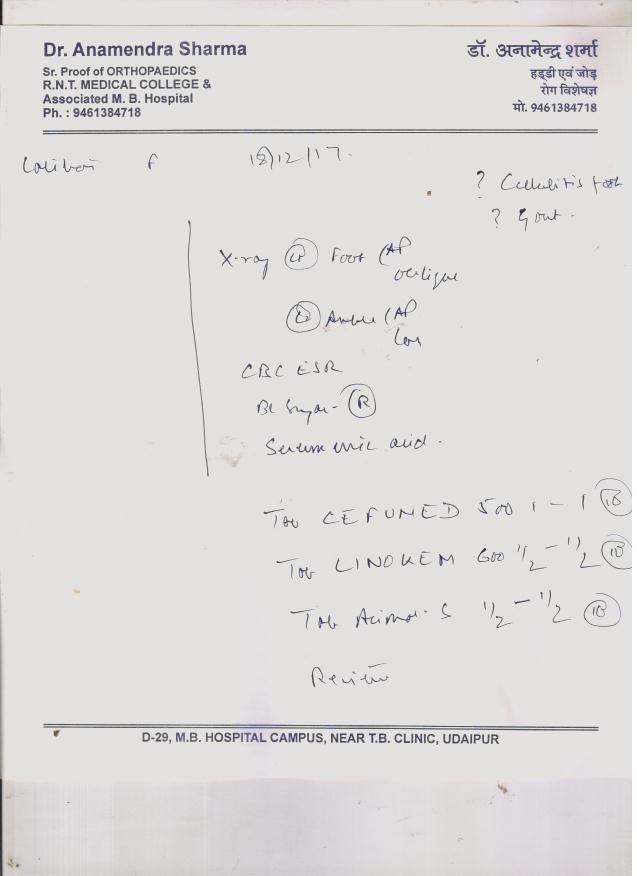 Dr. Anamendra Sharma
Sr. Proof of ORTHOPAEDICS
R.N.T. MEDICAL COLLEGE &
Associated M. B. Hospital
Ph. : 9461384718
डॉ. अनामेन्द्र शर्मा
हड्डी एवं जोड़
रोग विशेषज्ञ
मो. 9461384718
F 18/12/17.
? Cellulitis foot
? Gout.
X-ray Foot (AP
oblique
Ankle (AP
CBC ESR
Bl Sugar - (R)
Serum uric acid.
Tab CEFUMED 500 1 - 1 (10)
Tab LINOKEM 600 1/2 - 1/2 (10)
Tab 1/2 - 1/2 (10)
Review
D-29, M.B. HOSPITAL CAMPUS, NEAR T.B. CLINIC, UDAIPUR